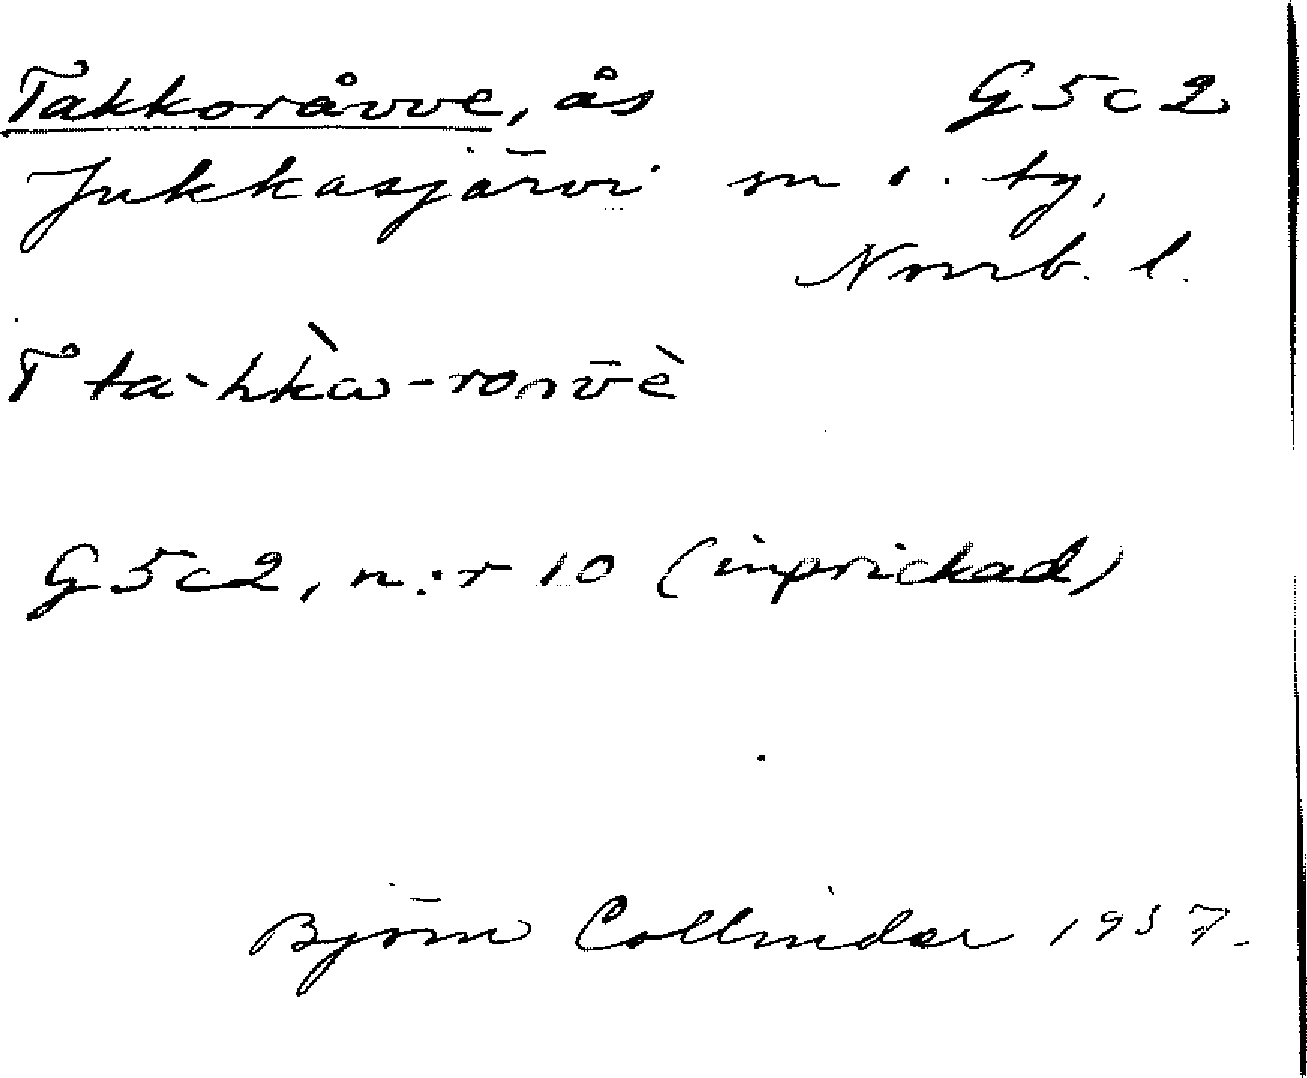 Takkoråvve, ås G5c2
Jukkasjärvi sn o. tg,
Norrb. l.
T ta-hkw̄-ronvè
G5c2, n:r 10 (inprickad)
Björn Collinder 1957.